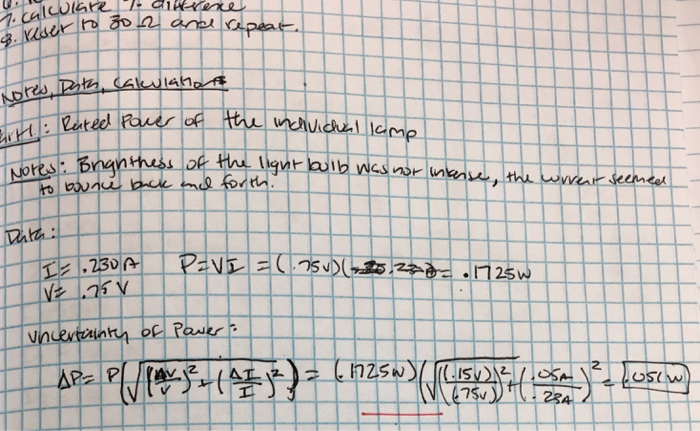 7. Calculate % difference
8. reset to 30 Ω and repeat.
Notes, Data, Calculations
Part 1: Rated Power of the individual lamp
Notes: Brightness of the light bulb was not intense, the current seemed
to bounce back and forth.
Data:
I = .230A P=VI = (.75V)( .230) = .1725W
V= .75V
Uncertainty of Power:
ΔP= P(√(ΔV/V)²+(ΔI/I)²) = (.1725W)(√((.15V)/(.75V))²+(.05A/.23A)² = .051W